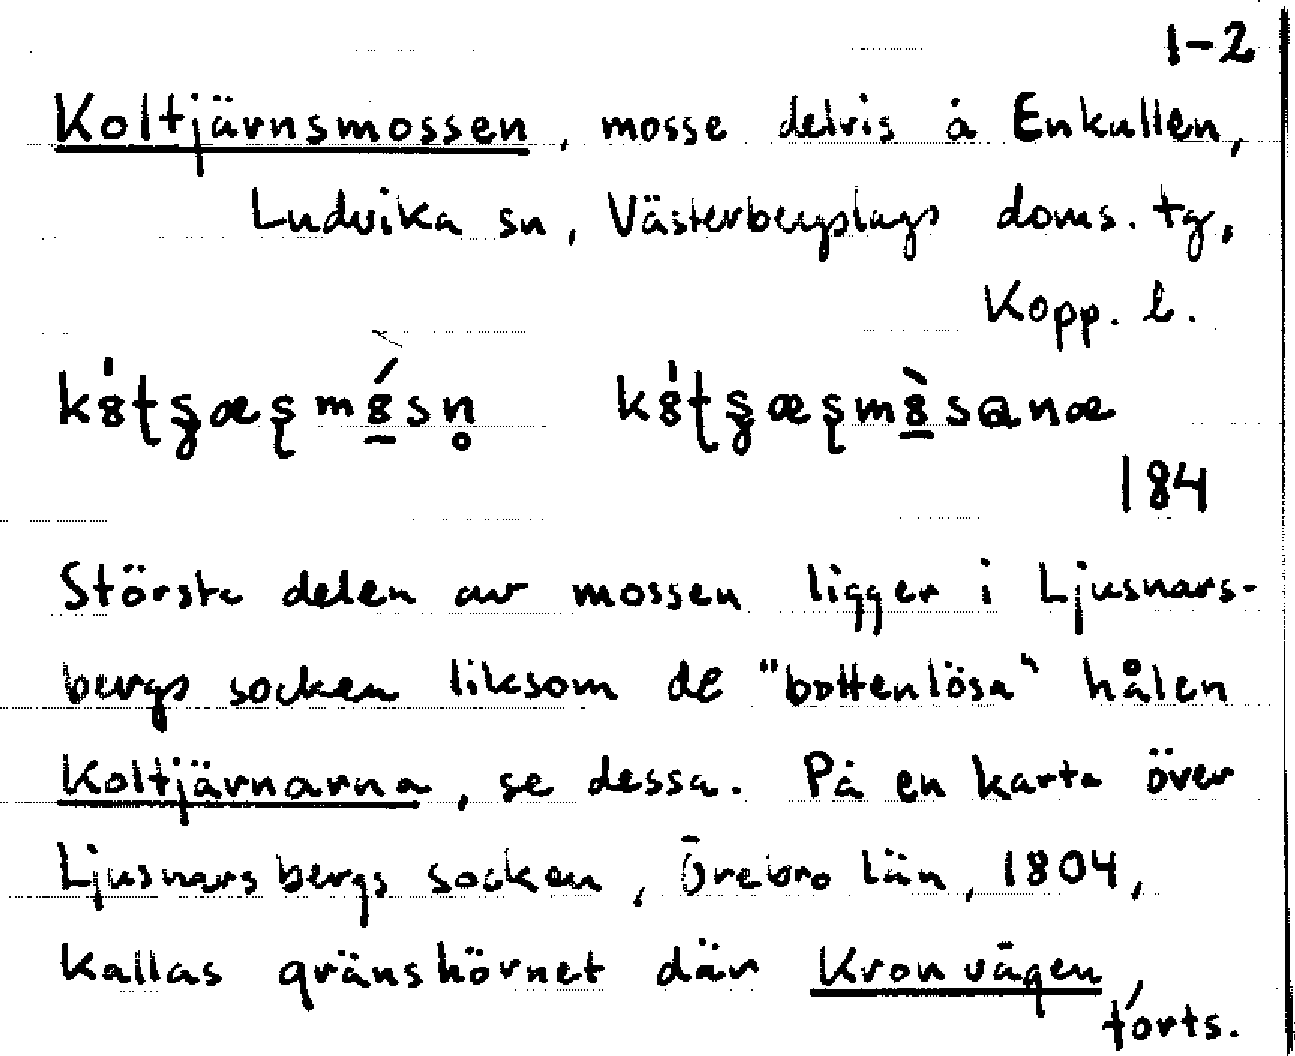 1-2
Koltjärnsmossen, mosse delvis å Enkullen,
Ludvika sn, Västerbergslags doms. tg,
Kopp. l.
184
Största delen av mossen ligger i Ljusnars-
bergs socken liksom de "bottenlösa" hålen
Koltjärnarna, se dessa. På en karta över
Ljusnarsbergs socken, Örebro län, 1804,
kallas gränshörnet där Kronvägen,
forts.